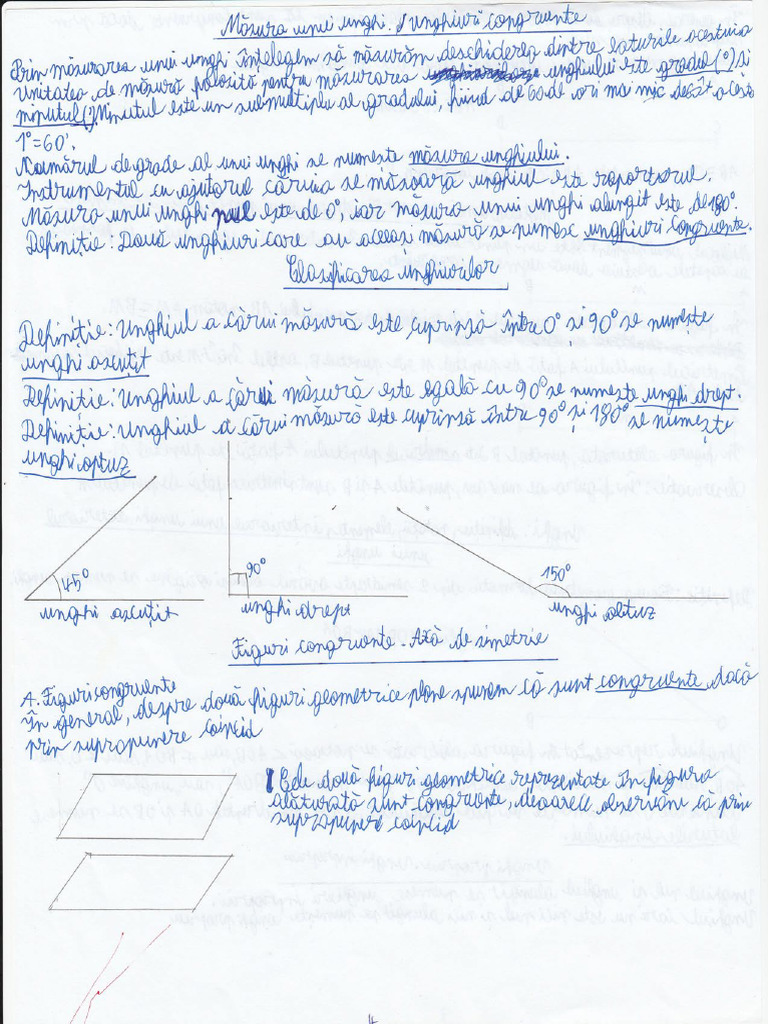 Măsura unui unghi. Unghiuri congruente
Prin măsurarea unui unghi înțelegem să măsurăm deschiderea dintre laturile acestuia
Unitatea de măsură folosită pentru măsurarea unghiului este gradul (°) și
minutul('). Minutul este un submultiplu al gradului, fiind de 60 de ori mai mic decât acesta
1°=60'.
Numărul de grade al unui unghi se numește măsura unghiului.
Instrumentul cu ajutorul căruia se măsoară unghiul este raportorul.
Măsura unui unghi nul este de 0°, iar măsura unui unghi alungit este de 180°.
Definiție: Două unghiuri care au aceeași măsură se numesc unghiuri congruente.
Clasificarea unghiurilor
Definiție: Unghiul a cărui măsură este cuprinsă între 0° și 90° se numește
unghi ascuțit
Definiție: Unghiul a cărui măsură este egală cu 90° se numește unghi drept.
Definiție: Unghiul a cărui măsură este cuprinsă între 90° și 180° se numește
unghi optuz
45° 90° 150°
unghi ascuțit unghi drept unghi obtuz
Figuri congruente. Axă de simetrie
A. Figuri congruente
În general, despre două figuri geometrice plane spunem că sunt congruente dacă
prin suprapunere coincid
Cele două figuri geometrice reprezentate în figura
alăturată sunt congruente, deoarece observăm că prin
suprapunere coincid